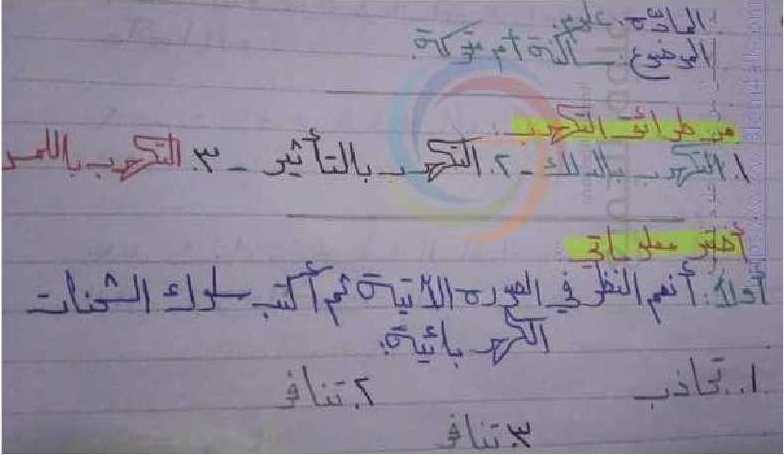 المادة: علوم.
الموضوع: ساكنة أم متحركة.
من طرائق التكهرب:
١. التكهرب بالدلك - ٢. التكهرب بالتأثير - ٣. التكهرب باللمس
أختبر معلوماتي
أولاً: أنعم النظر في الصورة الآتية ثم أكتب سلوك الشحنات
الكهربائية:
١. تجاذب ٢. تنافر
٣. تنافر